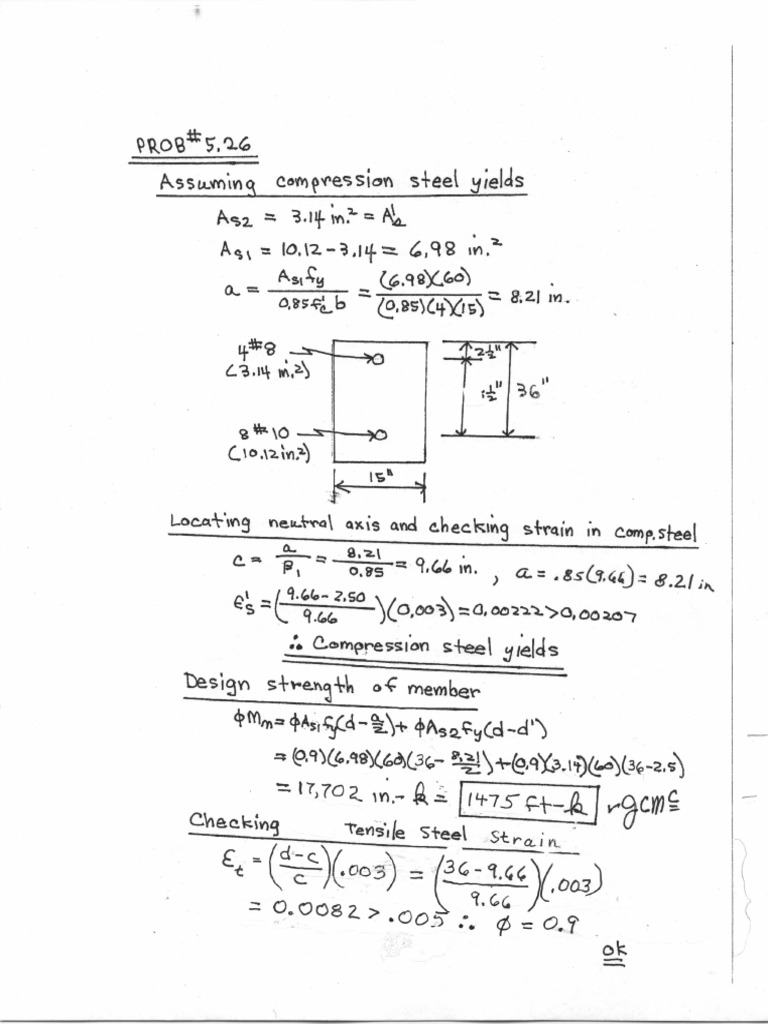 PROB#5.26
Assuming compression steel yields
As2 = 3.14 in.² = A's
As1 = 10.12 - 3.14 = 6.98 in.²
a = As1fy / 0.85f'c b = (6.98)(60) / (0.85)(4)(15) = 8.21 in.
4#8
(3.14 in.²)
2½"
36"
8#10
(10.12 in.²)
15"
Locating neutral axis and checking strain in comp. steel
c = a / β1 = 8.21 / 0.85 = 9.66 in. , a = .85(9.66) = 8.21 in
ε's = (9.66-2.50 / 9.66)(0.003) = 0.00222 > 0.00207
∴ Compression steel yields
Design strength of member
ϕMm = ϕAs1fy(d-a/2) + ϕAs2fy(d-d')
= (0.9)(6.98)(60)(36-8.21/2) + (0.9)(3.14)(60)(36-2.5)
= 17,702 in.-k = 1475 ft-k
Checking Tensile Steel Strain
εt = (d-c / c)(.003) = (36-9.66 / 9.66)(.003)
= 0.0082 > .005 ∴ ϕ = 0.9
ok